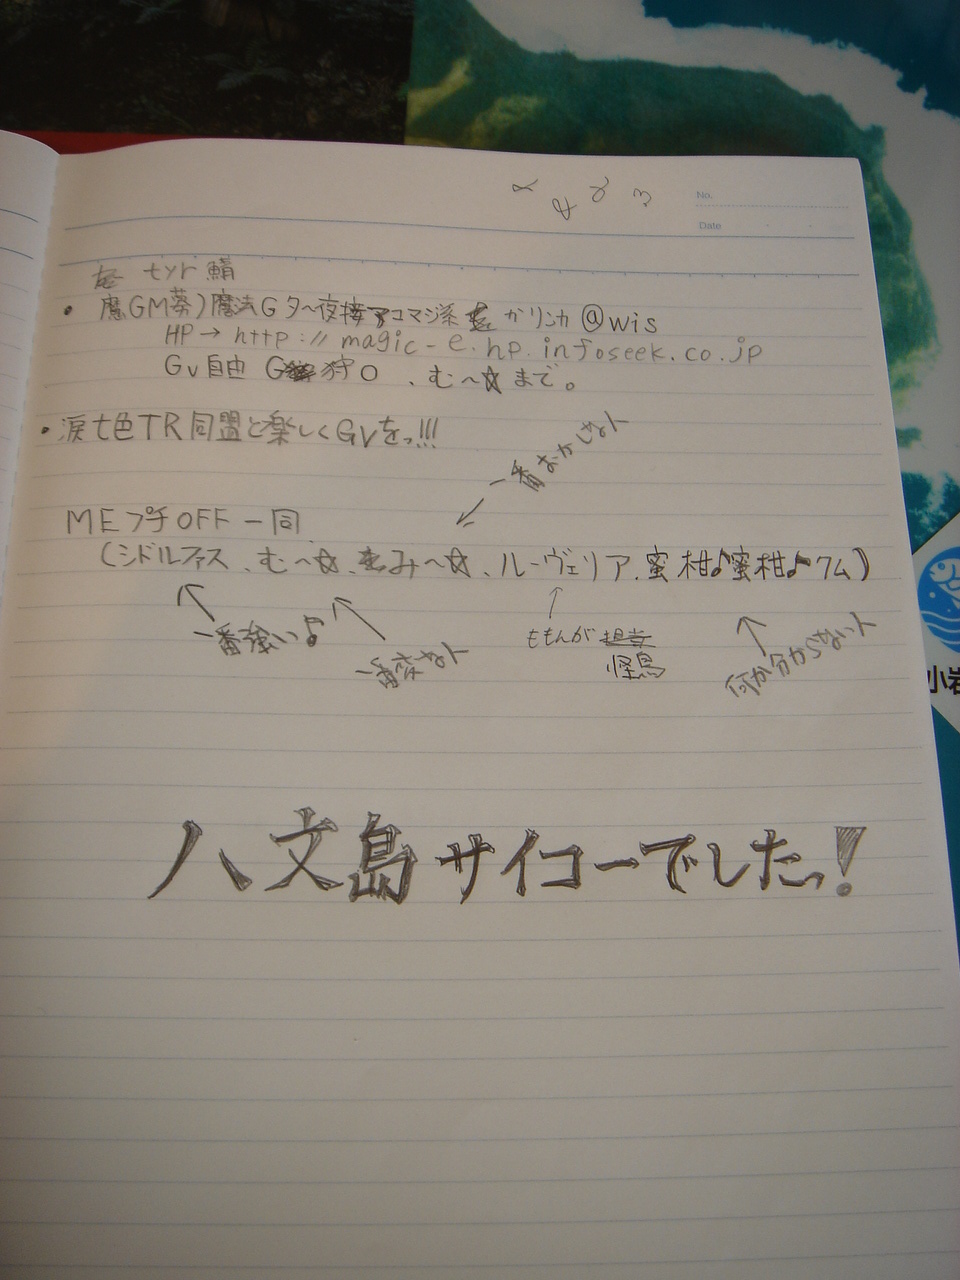 No.
Date
tyr 鯖
・ 魔GM葵)魔法G 夕〜夜接 アコマジ系 かリンカ @wis
HP→ http://magic-e.hp.infoseek.co.jp
Gv自由 G狩○ 、む〜☆まで。
・涙七色TR同盟と楽しくGVをっ!!!
一番おかしな人
MEプチOFF一同
(シドルファス、む〜☆、み〜☆、ルーヴェリア、蜜柑♪蜜柑♪クム)
一番強い♪
一番変な人
ももんが 担当
怪鳥
何か分からない人
八丈島サイコーでしたっ!
小岩